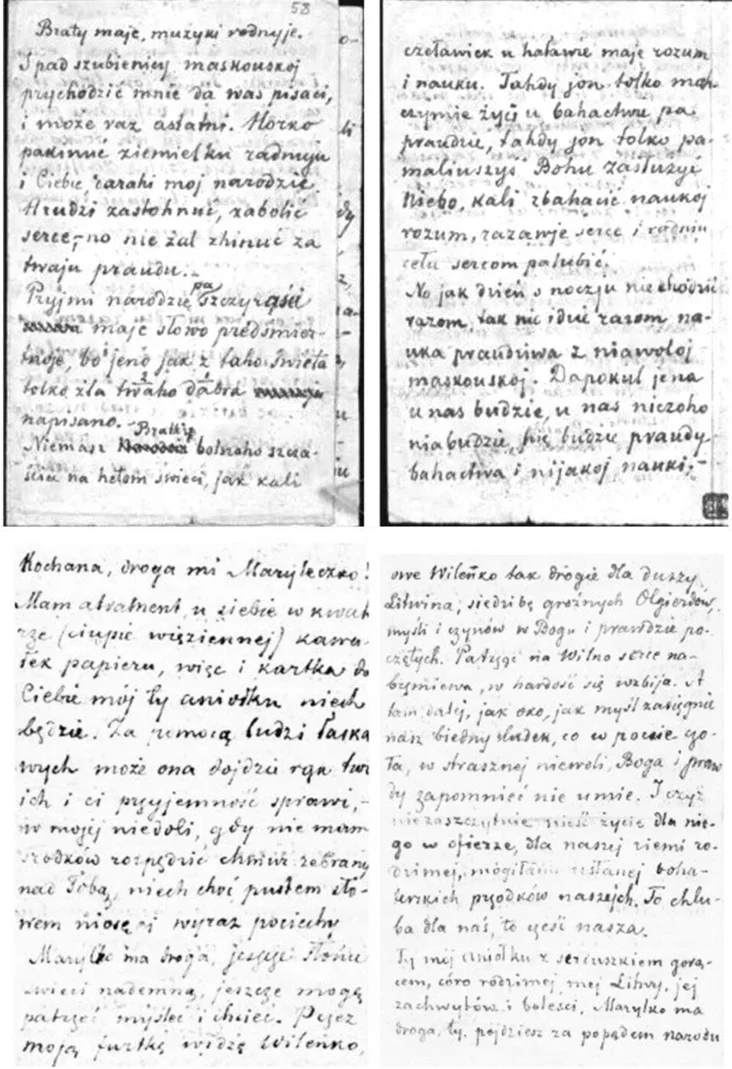 58
Braty maje, mużyki rodnyje.
I pad szubienicy maskouskoj
prychodzić mnie da was pisaci,
i może raz astatni. Horko
pakinuć ziemielku radnuju
i Ciebie darahi moj narodzie
Hrudzi zastohnuć, zabolić
serce,- no nie żal zhinuć za
twaju praudu.-
Pryjmi narodzie pa szczyrości
maje słowo predśmier-
tnoje, bo jeno jak z taho świeta
tolko dla twaho dabra
napisano.-
Niemasz Bratćiy bolszoho szcza-
ścia na hetom świeci, jak kali
czeławiek u haławie maje rozum
i nauku. Tahdy jon tolko mah-
czymie życi u bahactwu pa
praudzie, tahdy jon tolko pa-
maliuszyś Bohu zasłużyć
Niebo, kali zbahacić naukoj
rozum, razawje serce i rodniu
cełu sercom palubić.
No jak dzień z noczju nie chodzić
razom, tak nie idzie razom na-
uka praudziwa z niawoloj
maskouskoj. Dapokul jena
u nas budzie, u nas niczoho
niabudzie, nie budzie praudy,
bahactwa i nijakoj nauki,-
Kochana, droga mi Maryleczko!
Mam atratment u siebie w kwat
rze (ciupie więziennej) kawa-
łek papieru, więc i kartka do
Ciebie mój ty aniołku niech
będzie. Za pomocą ludzi łaska
wych może ona dojdzie rąk tw
ich i ci przyjemność sprawi,-
w mojej niedoli, gdy nie mam
środków rozpędzić chmur zebrany
nad Tobą, niech choć pustem sło-
wem niosę ci wyraz pociechy
Marylko ma droga, jeszcze słońce
świeci nademną, jeszcze mogę
patrzeć myśleć i chcieć. Przez
moją furtkę widzę Wileńko,
owe Wileńko tak drogie dla duszy
Litwina, siedzibę groźnych Olgierdów,
myśli i czynów w Bogu i prawdzie po-
czętych. Patrząc na Wilno serce na-
brzmiewa, w hardość się wzbija. A
tam dalej, jak oko, jak myśl zasięgnie
nasz biedny ludek, co w pocie czo-
ła, w strasznej niewoli, Boga i praw
dy zapomnieć nie umie. I czyż
niezaszczytnie nieść życie dla nie-
go w ofierze, dla naszej ziemi ro-
dzimej, mogiłami usłanej boha-
terskich przodków naszych. To chlu-
ba dla nas, to cześć nasza.
Ty mój aniołku z serduszkiem gorą-
cem, córo rodzimej mej Litwy, jej
zachwytów i boleści, Marylko ma
droga, ty pójdziesz za popędem narodu